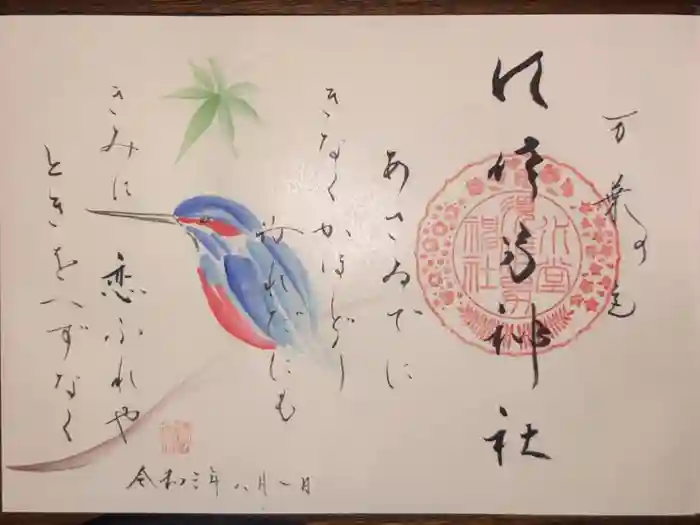 万葉の
神社
あさゐでに
きなくかほどり
なれだにも
きみに 恋ふれや
ときをへずなく
令和三年八月一日